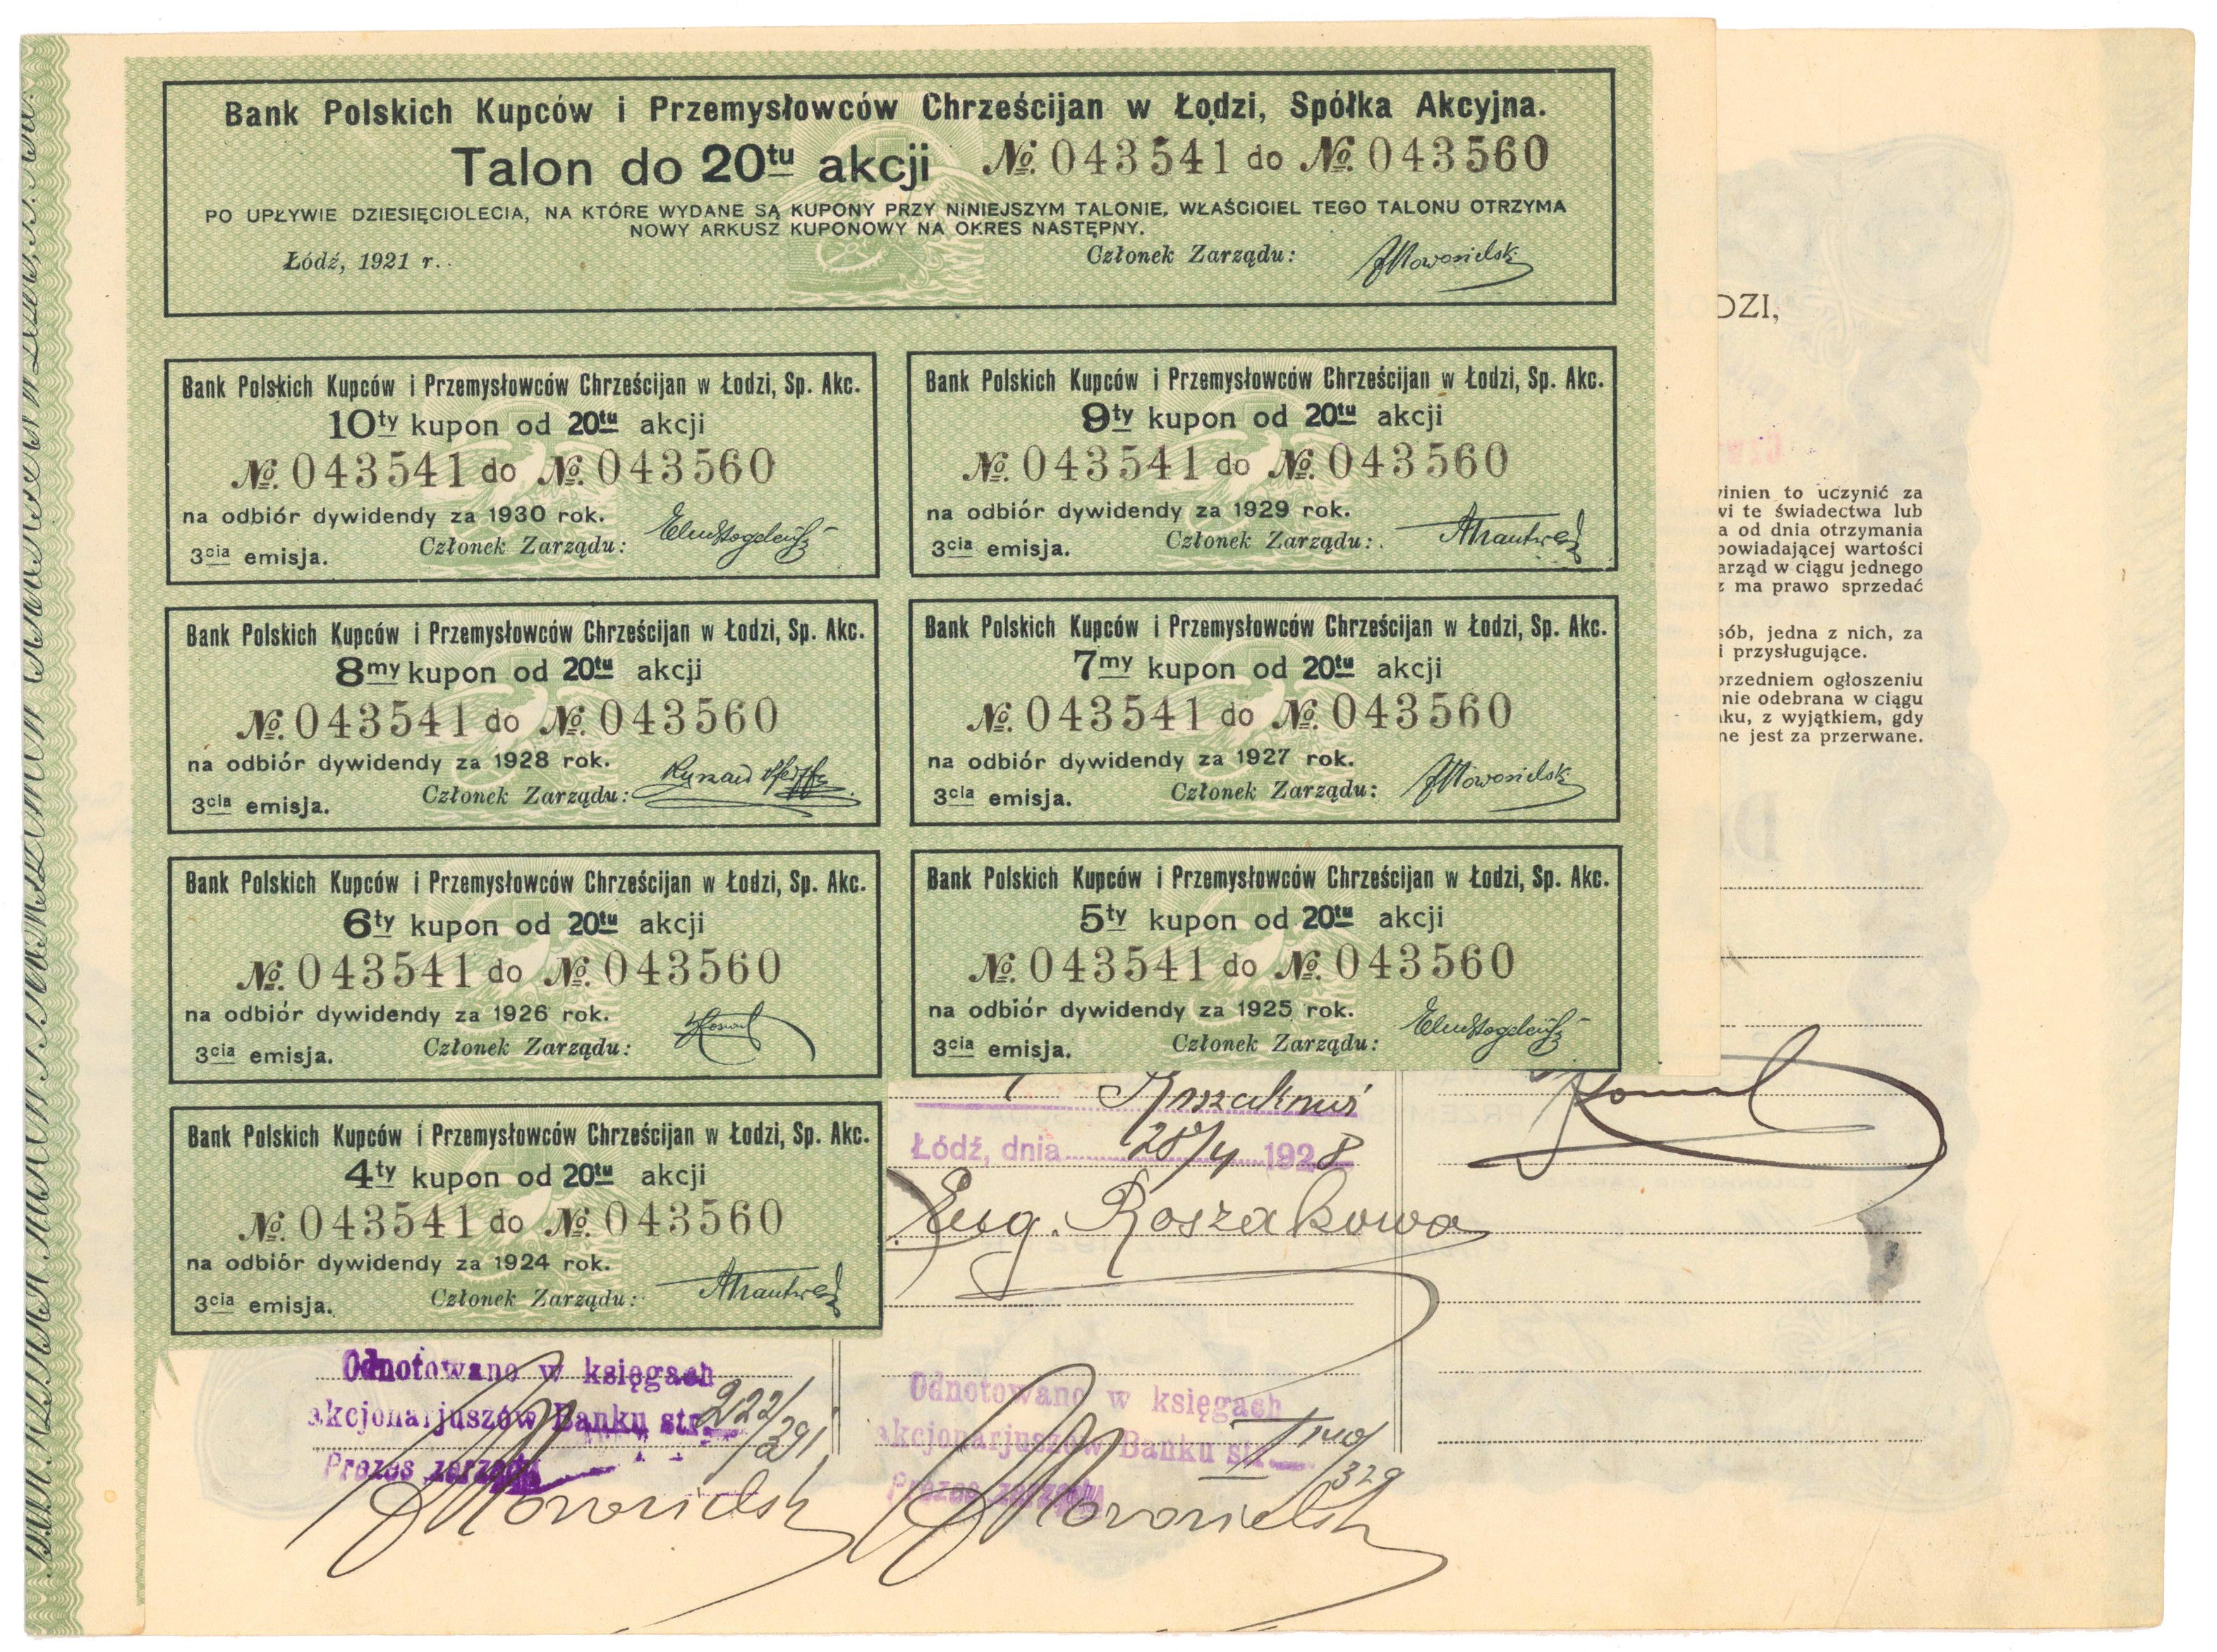 Bank Polskich Kupców i Przemysłowców Chrześcijan w Łodzi, Spółka Akcyjna.
Talon do 20tu akcji № 043541 do № 043560
PO UPŁYWIE DZIESIĘCIOLECIA, NA KTÓRE WYDANE SĄ KUPONY PRZY NINIEJSZYM TALONIE, WŁAŚCICIEL TEGO TALONU OTRZYMA
NOWY ARKUSZ KUPONOWY NA OKRES NASTĘPNY.
Łódź, 1921 r. Członek Zarządu:
Bank Polskich Kupców i Przemysłowców Chrześcijan w Łodzi, Sp. Akc.
10ty kupon od 20tu akcji
№ 043541 do № 043560
na odbiór dywidendy za 1930 rok.
3cia emisja. Członek Zarządu:
Bank Polskich Kupców i Przemysłowców Chrześcijan w Łodzi, Sp. Akc.
9ty kupon od 20tu akcji
№ 043541 do № 043560
na odbiór dywidendy za 1929 rok.
3cia emisja. Członek Zarządu:
Bank Polskich Kupców i Przemysłowców Chrześcijan w Łodzi, Sp. Akc.
8my kupon od 20tu akcji
№ 043541 do № 043560
na odbiór dywidendy za 1928 rok.
3cia emisja. Członek Zarządu:
Bank Polskich Kupców i Przemysłowców Chrześcijan w Łodzi, Sp. Akc.
7my kupon od 20tu akcji
№ 043541 do № 043560
na odbiór dywidendy za 1927 rok.
3cia emisja. Członek Zarządu:
Bank Polskich Kupców i Przemysłowców Chrześcijan w Łodzi, Sp. Akc.
6ty kupon od 20tu akcji
№ 043541 do № 043560
na odbiór dywidendy za 1926 rok.
3cia emisja. Członek Zarządu:
Bank Polskich Kupców i Przemysłowców Chrześcijan w Łodzi, Sp. Akc.
5ty kupon od 20tu akcji
№ 043541 do № 043560
na odbiór dywidendy za 1925 rok.
3cia emisja. Członek Zarządu:
Bank Polskich Kupców i Przemysłowców Chrześcijan w Łodzi, Sp. Akc.
4ty kupon od 20tu akcji
№ 043541 do № 043560
na odbiór dywidendy za 1924 rok.
3cia emisja. Członek Zarządu:
DZI,
winien to uczynić za
wi te świadectwa lub
a od dnia otrzymania
powiadającej wartości
arząd w ciągu jednego
z ma prawo sprzedać
sób, jedna z nich, za
i przysługujące.
przedniem ogłoszeniu
nie odebrana w ciągu
ku, z wyjątkiem, gdy
ne jest za przerwane.
Łódź, dnia 28/4 1928
Eug. Roszakowa
Odnotowano w księgach
akcjonarjuszów Banku str. 222/291
Prezes zarządu
Odnotowano w księgach
akcjonarjuszów Banku str. II 140/329
Prezes zarządu